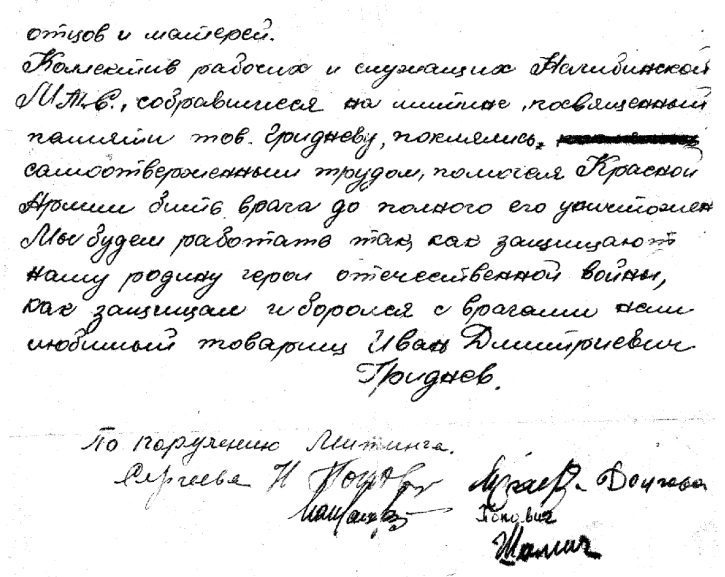 отцов и матерей.
Коллектив рабочих и служащих Нагибинской
М.Т.С., собравшиеся на митинг, посвященный
памяти тов. Гридневу, поклялись,
самоотверженным трудом, помогая Красной
Армии бить врага до полного его уничтожен
Мы будем работать так, как защищают
нашу родину герои отечественной войны,
как защищал и боролся с врагами наш
любимый товарищ Иван Дмитриевич
Гриднев.
По поручению митинга.
Сергеева Н Долгова
Попович